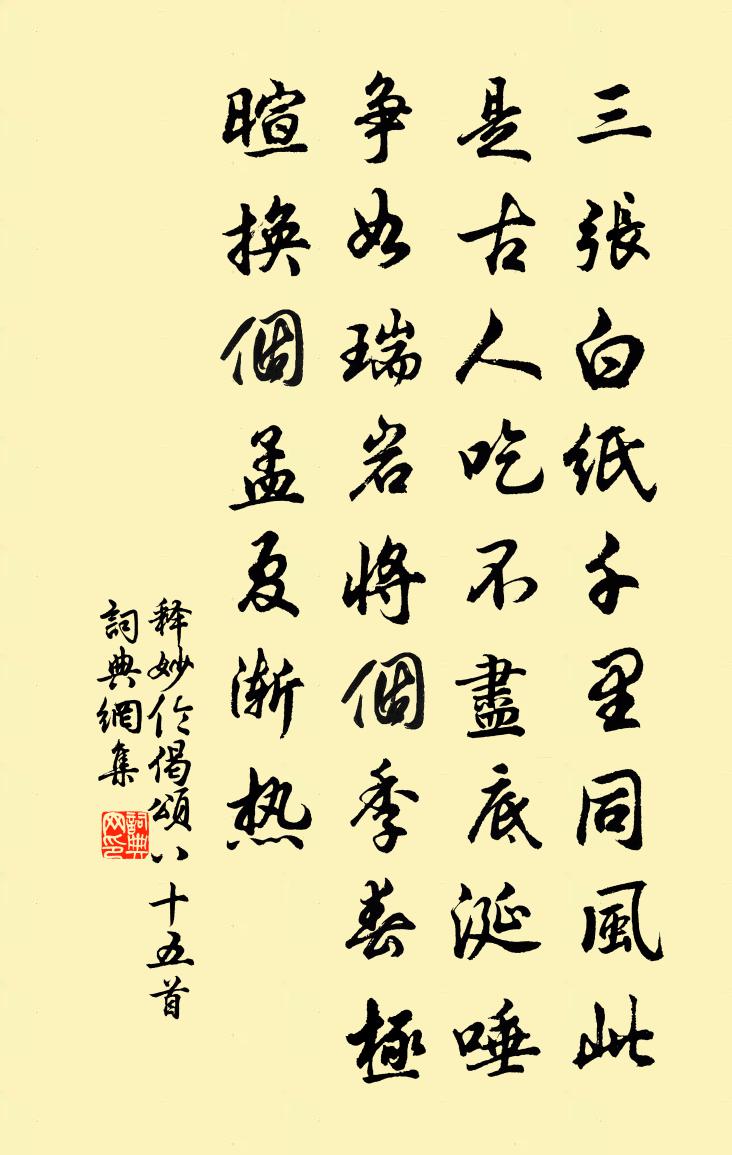 三張白紙千里同風此
是古人吃不盡底涎唾
争如瑞岩將個季春極
暄換個孟夏漸热
释妙伦偈頌八十五首
詞典網集
詞典網印